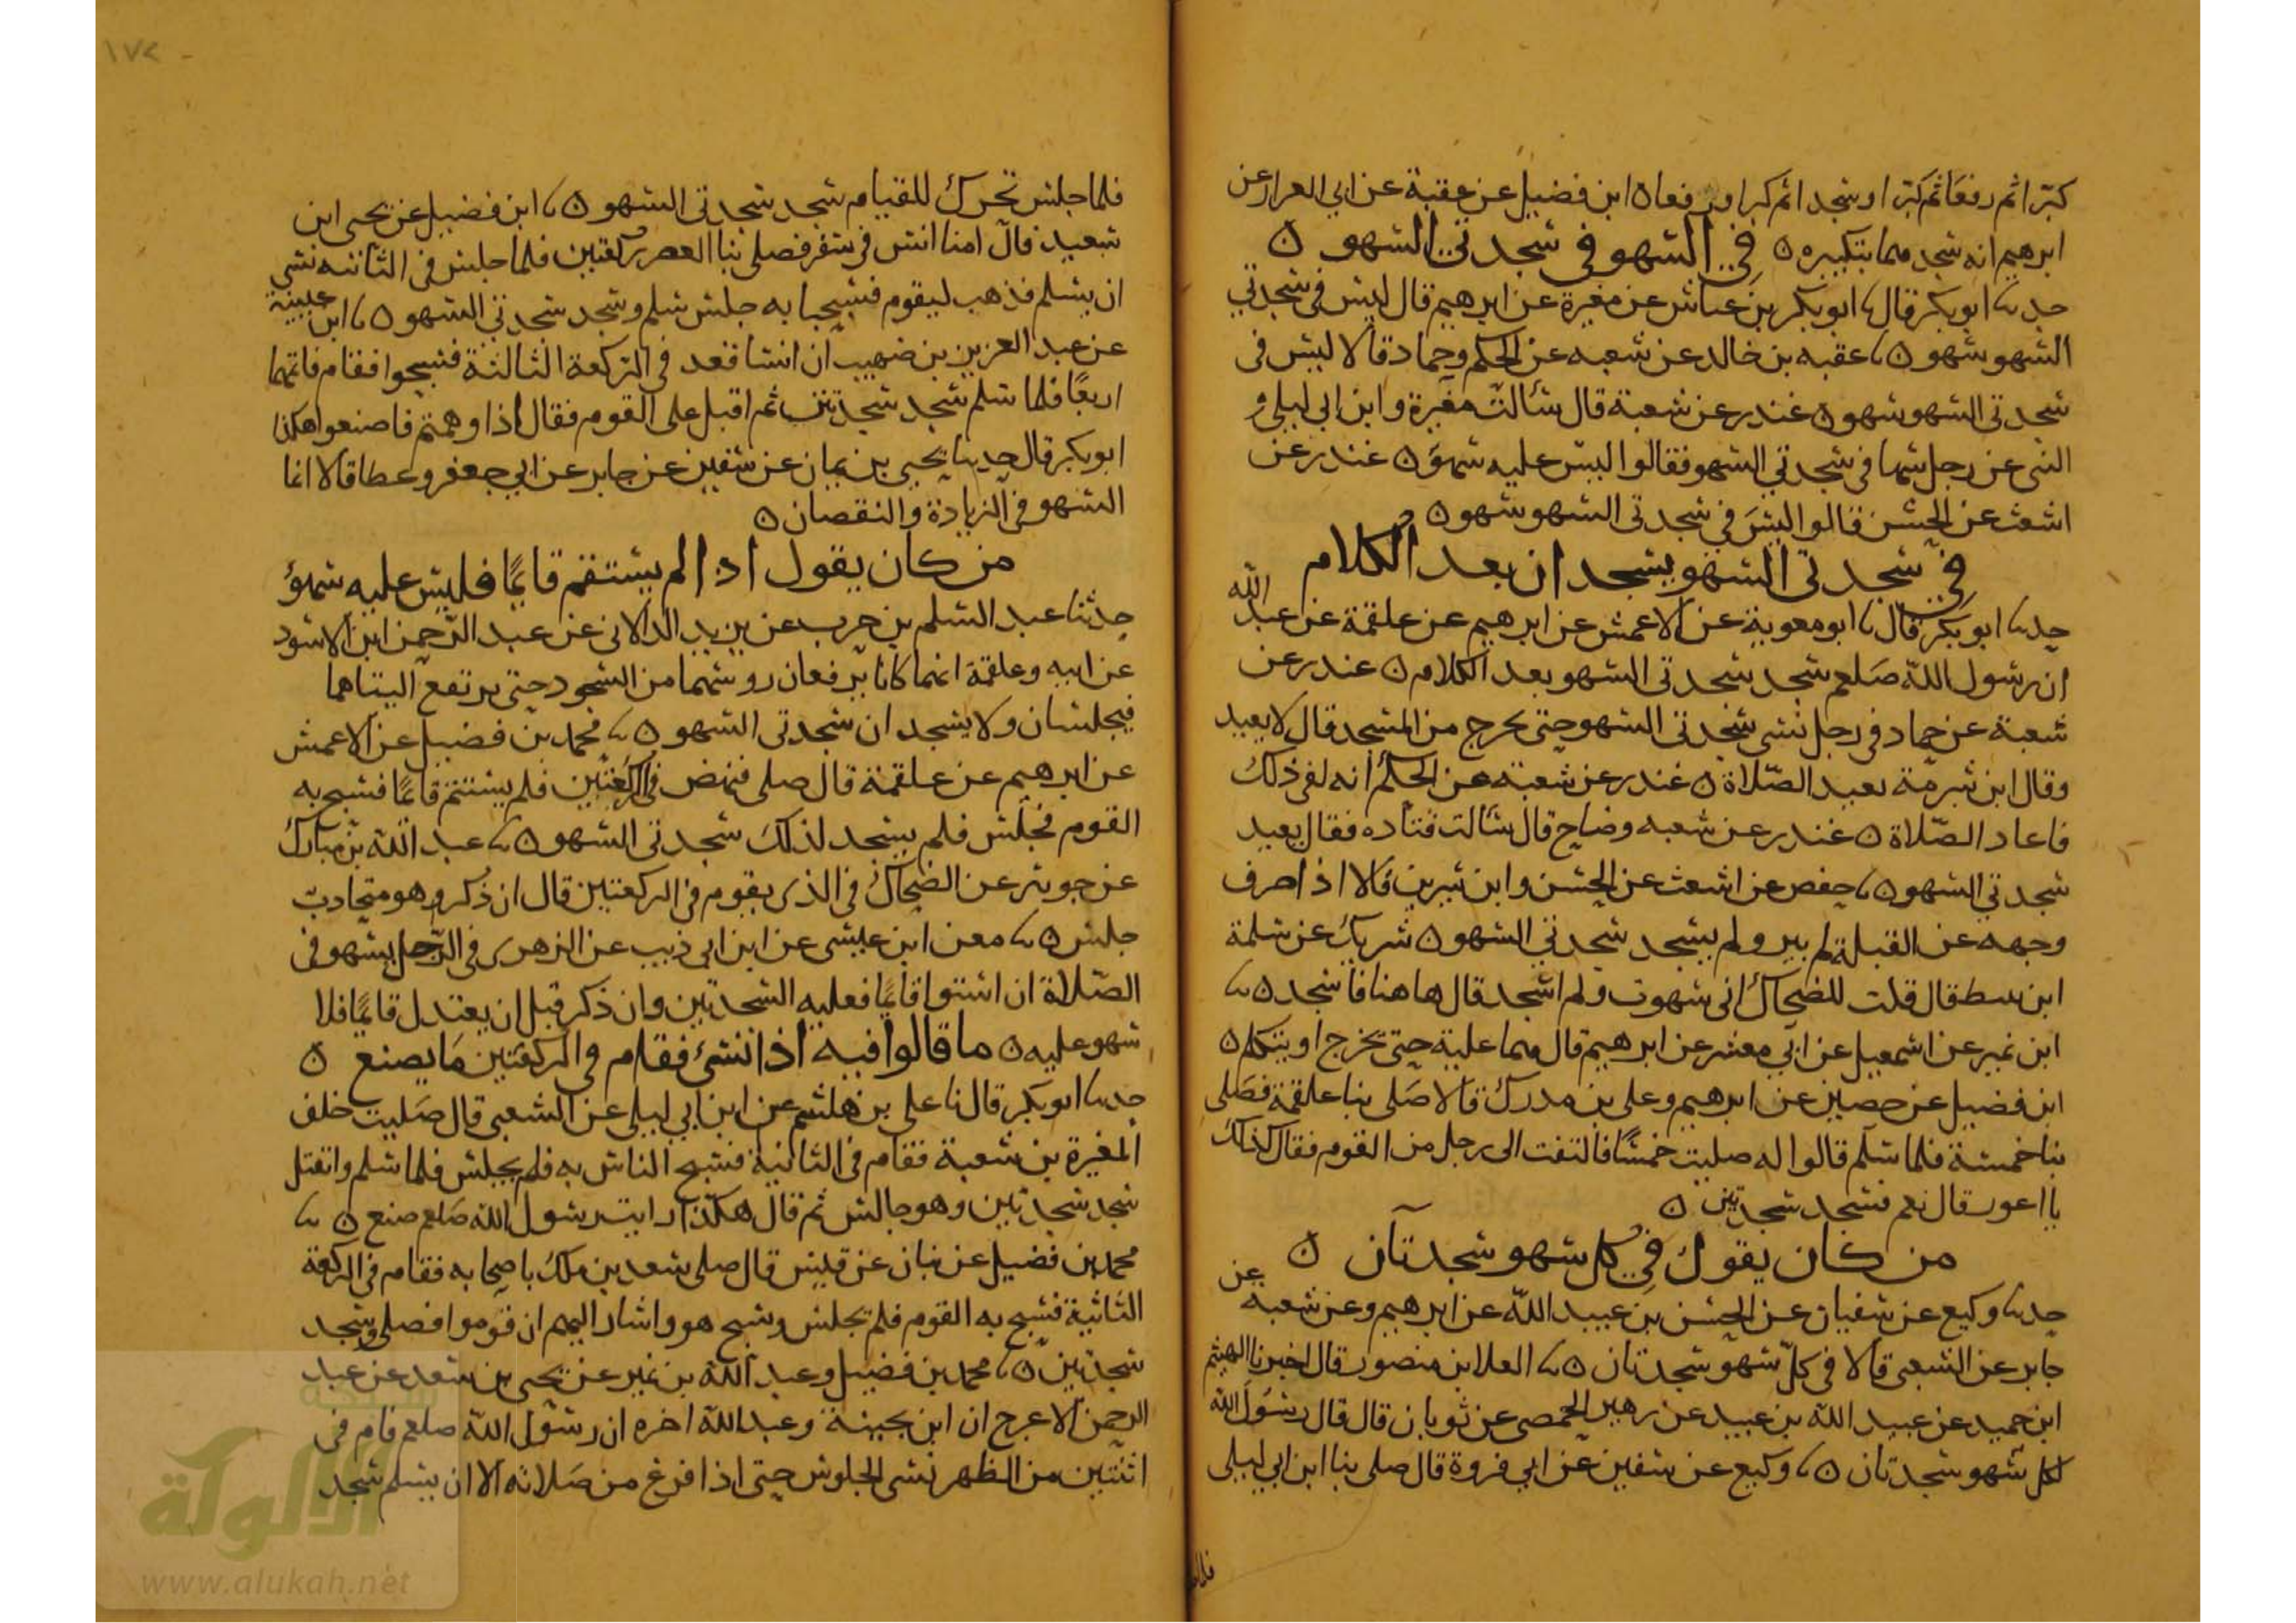 كبرا ثم رفعا ثم كبرا وسجدا ثم كبرا ورفعا ه ابن فضيل عن عقبة عن ابي العرار عن
ابرهيم انه سجد مهما بتكبيره ه في السهو في سجدتي السهو ه
حدثنا ابو بكر قال نا ابو بكر بن عياش عن مغيرة عن ابرهيم قال ليس في سجدتي
السهو سهو ه نا عقبه بن خالد عن شعبه عن الحكم وحماد قالا ليس في
سجدتي السهو سهو ه غندر عن شعبة قال سألت مغيرة وابن ابي ليلى و
التي عن رجل سها في سجدتي السهو فقالوا ليس عليه سهو ه غندر عن
اشعث عن الحسن قالوا ليس في سجدتي السهو سهو ه
في سجدتي السهو يسجدان بعد الكلام
حدثنا ابو بكر قال نا ابو معوية عن الاعمش عن ابرهيم عن علقمة عن عبد الله
ان رسول الله صلعم سجد سجدتي السهو بعد الكلام ه غندر عن
شعبة عن حماد في رجل نسي سجدتي السهو حتى يخرج من المسجد قال لا يعيد
وقال ابن شبرمة يعيد الصلاة ه غندر عن شعبة عن الحكم انه لقي ذلك
فاعاد الصلاة ه غندر عن شعبه وضاح قال سألت قتاده فقال يعيد
سجدتي السهو ه نا حفص عن اشعث عن الحسن وابن سيرين قالا اذا صرف
وجهه عن القبلة لم يبر ولم يسجد سجدتي السهو ه شريك عن سلمة
ابن نبيط قال قلت للضحاك اني سهوت ولم اسجد قال ها هنا فاسجد ه نا
ابن نمير عن اسمعيل عن ابي معشر عن ابرهيم قال هما عليه حتى يخرج او يتكلم ه
ابن فضيل عن حصين عن ابرهيم وعلي بن مدرك قالا صلى بنا علقمة فصلى
بنا خمسة فلما سلم قالوا له صليت خمسًا فالتفت الى رجل من القوم فقال كذلك
يا اعور قال نعم فسجد سجدتين ه
من كان يقول في كل سهو سجدتان ه
حدثنا وكيع عن سفيان عن الحسن بن عبيد الله عن ابرهيم وعن شعبه عن
جابر عن الشعبي قالا في كل سهو سجدتان ه نا العلا بن منصور قال اخبرنا الهيثم
ابن حميد عن عبيد الله بن عبيد عن زهير الحمصي عن ثوبان قال قال رسول الله
لكل سهو سجدتان ه نا وكيع عن سفين عن ابي فروة قال صلى بنا ابن ابي ليلى
فلما جلس تحرك للقيام سجد سجدتي السهو ه نا ابن فضيل عن يحيى ابن
سعيد قال امنا انس في سفر فصلى بنا العصر ركعتين فلما جلس في الثانيه نسي
ان يسلم فذهب ليقوم فسبحنا به جلس سلم وسجد سجدتي السهو ه نا ابن عيينة
عن عبد العزيز بن صهيب ان انسا قعد في الركعة الثالثة فسبحوا فقام فاتمها
اربعًا فلما سلم سجد سجدتين ثم اقبل على القوم فقال اذا وهمتم فاصنعوا هكذا
ابو بكر قال حدثنا يحيى بن يمان عن سفين عن جابر عن ابي جعفر وعطا قالا انما
السهو في الزيادة والنقصان ه
من كان يقول اذا لم يستقم قايمًا فليس عليه سهو
حدثنا عبد السلم بن حرب عن يزيد الدالاني عن عبد الرحمن ابن الاسود
عن ابيه وعلقمة انهما كانا يرفعان روسهما من السجود حتى يرتفع اليتاهما
فيجلسان ولا يسجدان سجدتي السهو ه نا محمد بن فضيل عن الاعمش
عن ابرهيم عن علقمة قال صلى فنهض في الركعتين فلم يستتم قايمًا فسبح به
القوم فجلس فلم يسجد لذلك سجدتي السهو ه نا عبد الله بن مبارك
عن جويبر عن الضحاك في الذي يقوم في الركعتين قال ان ذكر وهو متجادب
جلس ه نا معن ابن عيسى عن ابن ابي ذيب عن الزهري في الرجل يسهو في
الصلاة ان استوا قايمًا فعليه السجدتين وان ذكر قبل ان يعتدل قايمًا فلا
سهو عليه ه ما قالوا فيه اذا نسي فقام في الركعتين ما يصنع ه
حدثنا ابو بكر قال نا علي بن هاشم عن ابن ابي ليلى عن الشعبي قال صليت خلف
المغيرة بن شعبة فقام في الثانية فسبح الناس به فلم يجلس فلما سلم وانفتل
سجد سجدتين وهو جالس ثم قال هكذا رايت رسول الله صلعم صنع ه نا
محمد بن فضيل عن بنان عن قيس قال صلى سعد بن ملك باصحابه فقام في الركعة
الثانية فسبح به القوم فلم يجلس وسبح هو واشار اليهم ان قوموا فصلى وسجد
سجدتين ه نا محمد بن فضيل وعبد الله بن نمير عن يحيى بن سعد عن عبد
الرحمن الاعرج ان ابن بحينة وعبد الله اخره ان رسول الله صلعم قام في
اثنتين من الظهر نسي الجلوس حتى اذا فرغ من صلاته الا ان يسلم سجد
شبكة
الألوكة
www.alukah.net